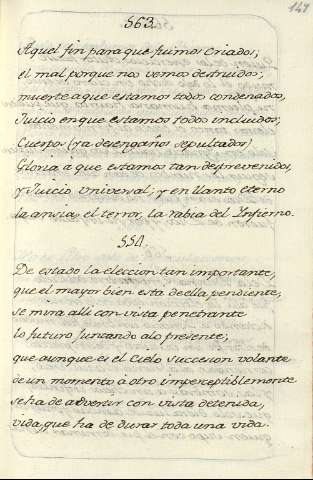 147
563.
Aquel fin para que fuimos criados,
el mal porque nos vemos destruidos,
muerte a que estamos todos condenados,
Juicio en que estamos todos incluidos,
Cuerpos (ya desengaños sepultados)
Gloria a que estamos tan desprevenidos,
y Juicio Universal, y en llanto eterno
la ansia, el terror, la rabia del Infierno.
554.
De estado la eleccion tan importante,
que el mayor bien está de ella pendiente,
se mira alli con vista penetrante
lo futuro juntando alo presente,
que aunque es el Cielo succesion volante
de un momento à otro imperceptiblemente
se ha de advertir con vista detenida,
vida, que ha de durar toda una vida.